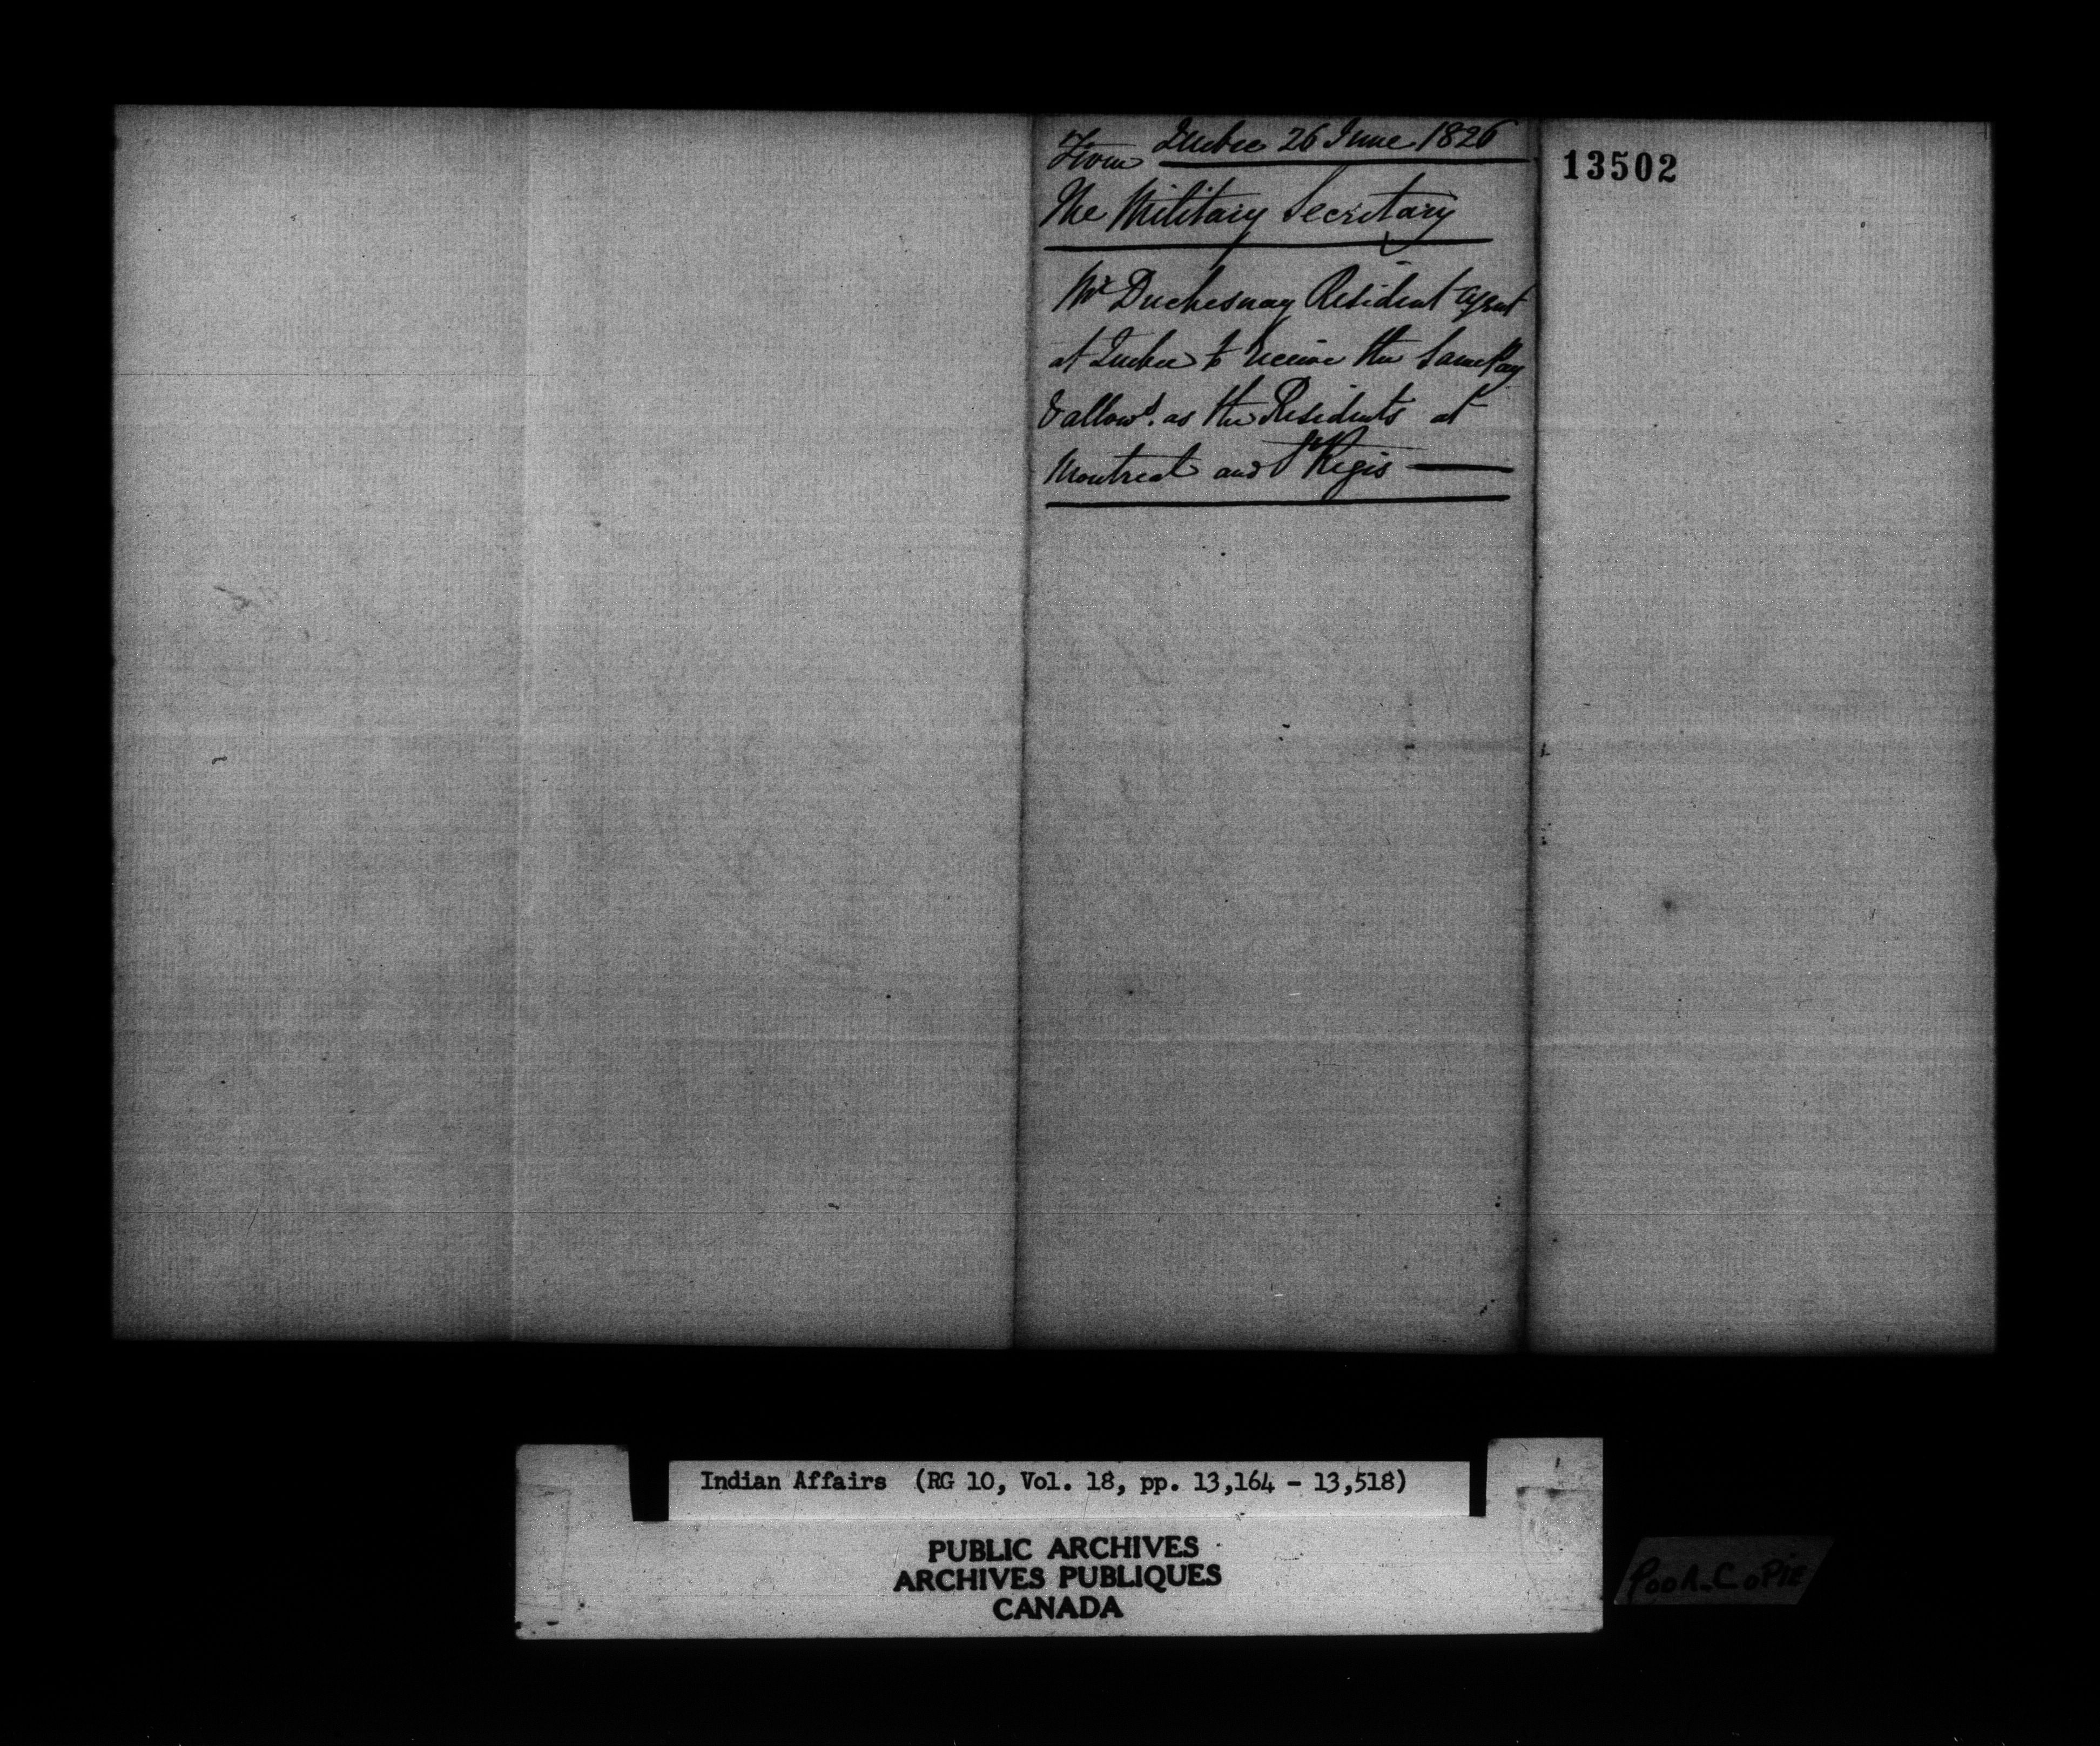 Quebec 26 June 1826
From
The Military Secretary
Mr Duchesnay Resident Agent
at Quebec to receive the same Pay
& allowd. as the Residents at
Montreal and St Regis —
13502
Indian Affairs (RG 10, Vol. 18, pp. 13,164 - 13,518)
PUBLIC ARCHIVES
ARCHIVES PUBLIQUES
CANADA
POOR COPIE